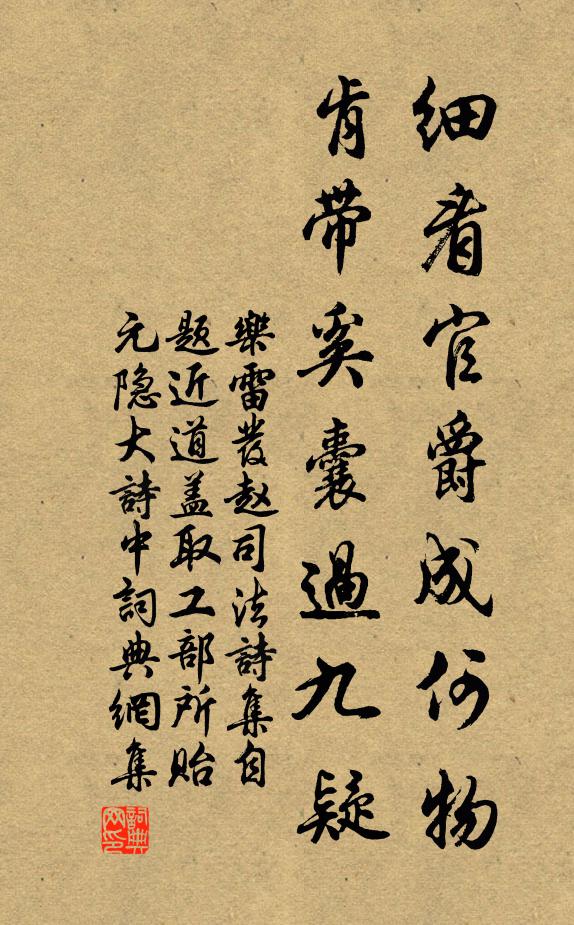 细看官爵成何物
肯带奚囊過九疑
樂雷發赵司法詩集自
题近道盖取工部所贻
元隐大詩中詞典網集
詞典网印